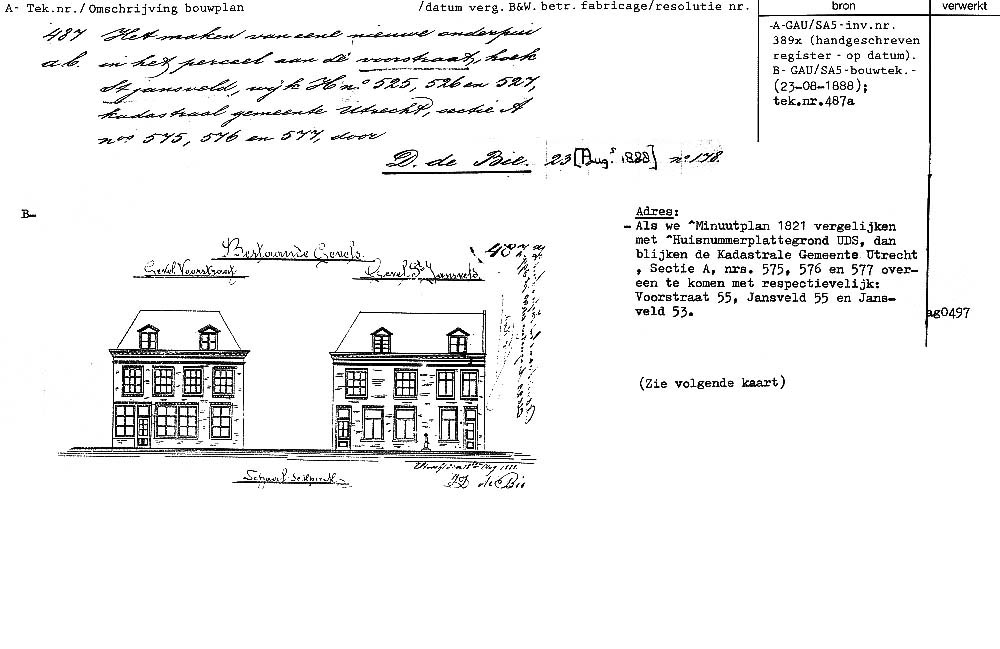 A- Tek.nr./Omschrijving bouwplan /datum verg. B&W. betr. fabricage/resolutie nr. bron verwerkt
487 Het maken van eene nieuwe onderpui
a.b. in het perceel aan de voorstraat, hoek
St jansveld, wijk H nos 525, 526 en 527,
kadastraal gemeente Utrecht, sectie A
nos 575, 576 en 577, door
D. de Bie. 23 [Augs 1888] no 178.
-A-GAU/SA5-inv.nr.
389x (handgeschreven
register - op datum).
B- GAU/SA5-bouwtek.-
(23-08-1888);
tek.nr.487a
B-
Bestaande Gevels.
Gevel Voorstraat
Gevel St Jansveld
D de Bie
Adres:
- Als we ^Minuutplan 1821 vergelijken
met ^Huisnummerplattegrond UDS, dan
blijken de Kadastrale Gemeente Utrecht
, Sectie A, nrs. 575, 576 en 577 over-
een te komen met respectievelijk:
Voorstraat 55, Jansveld 55 en Jans-
veld 53.
ag0497
(Zie volgende kaart)